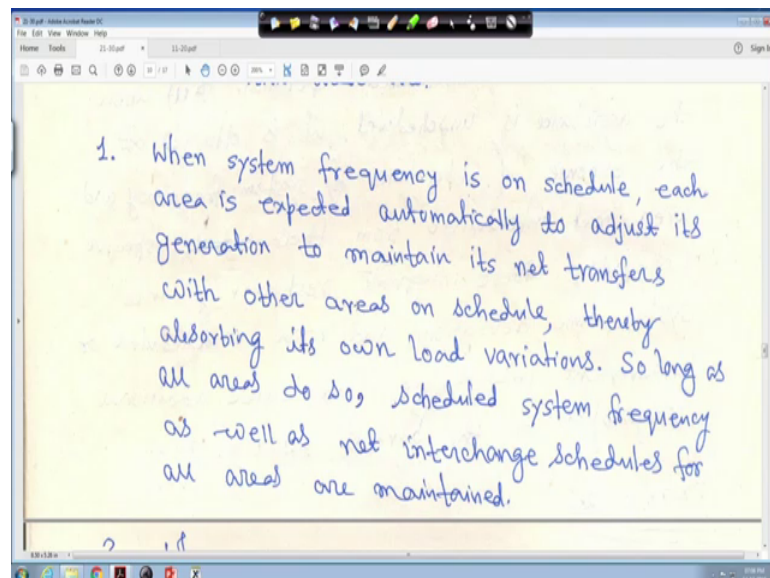 21-30.pdf - Adobe Acrobat Reader DC
File Edit View Window Help
Home Tools 21-30.pdf × 11-20.pdf Sign I
1. When system frequency is on schedule, each
area is expected automatically to adjust its
generation to maintain its net transfers
with other areas on schedule, thereby
absorbing its own load variations. So long as
all areas do so, scheduled system frequency
as well as net interchange schedules for
all areas are maintained.
2. If